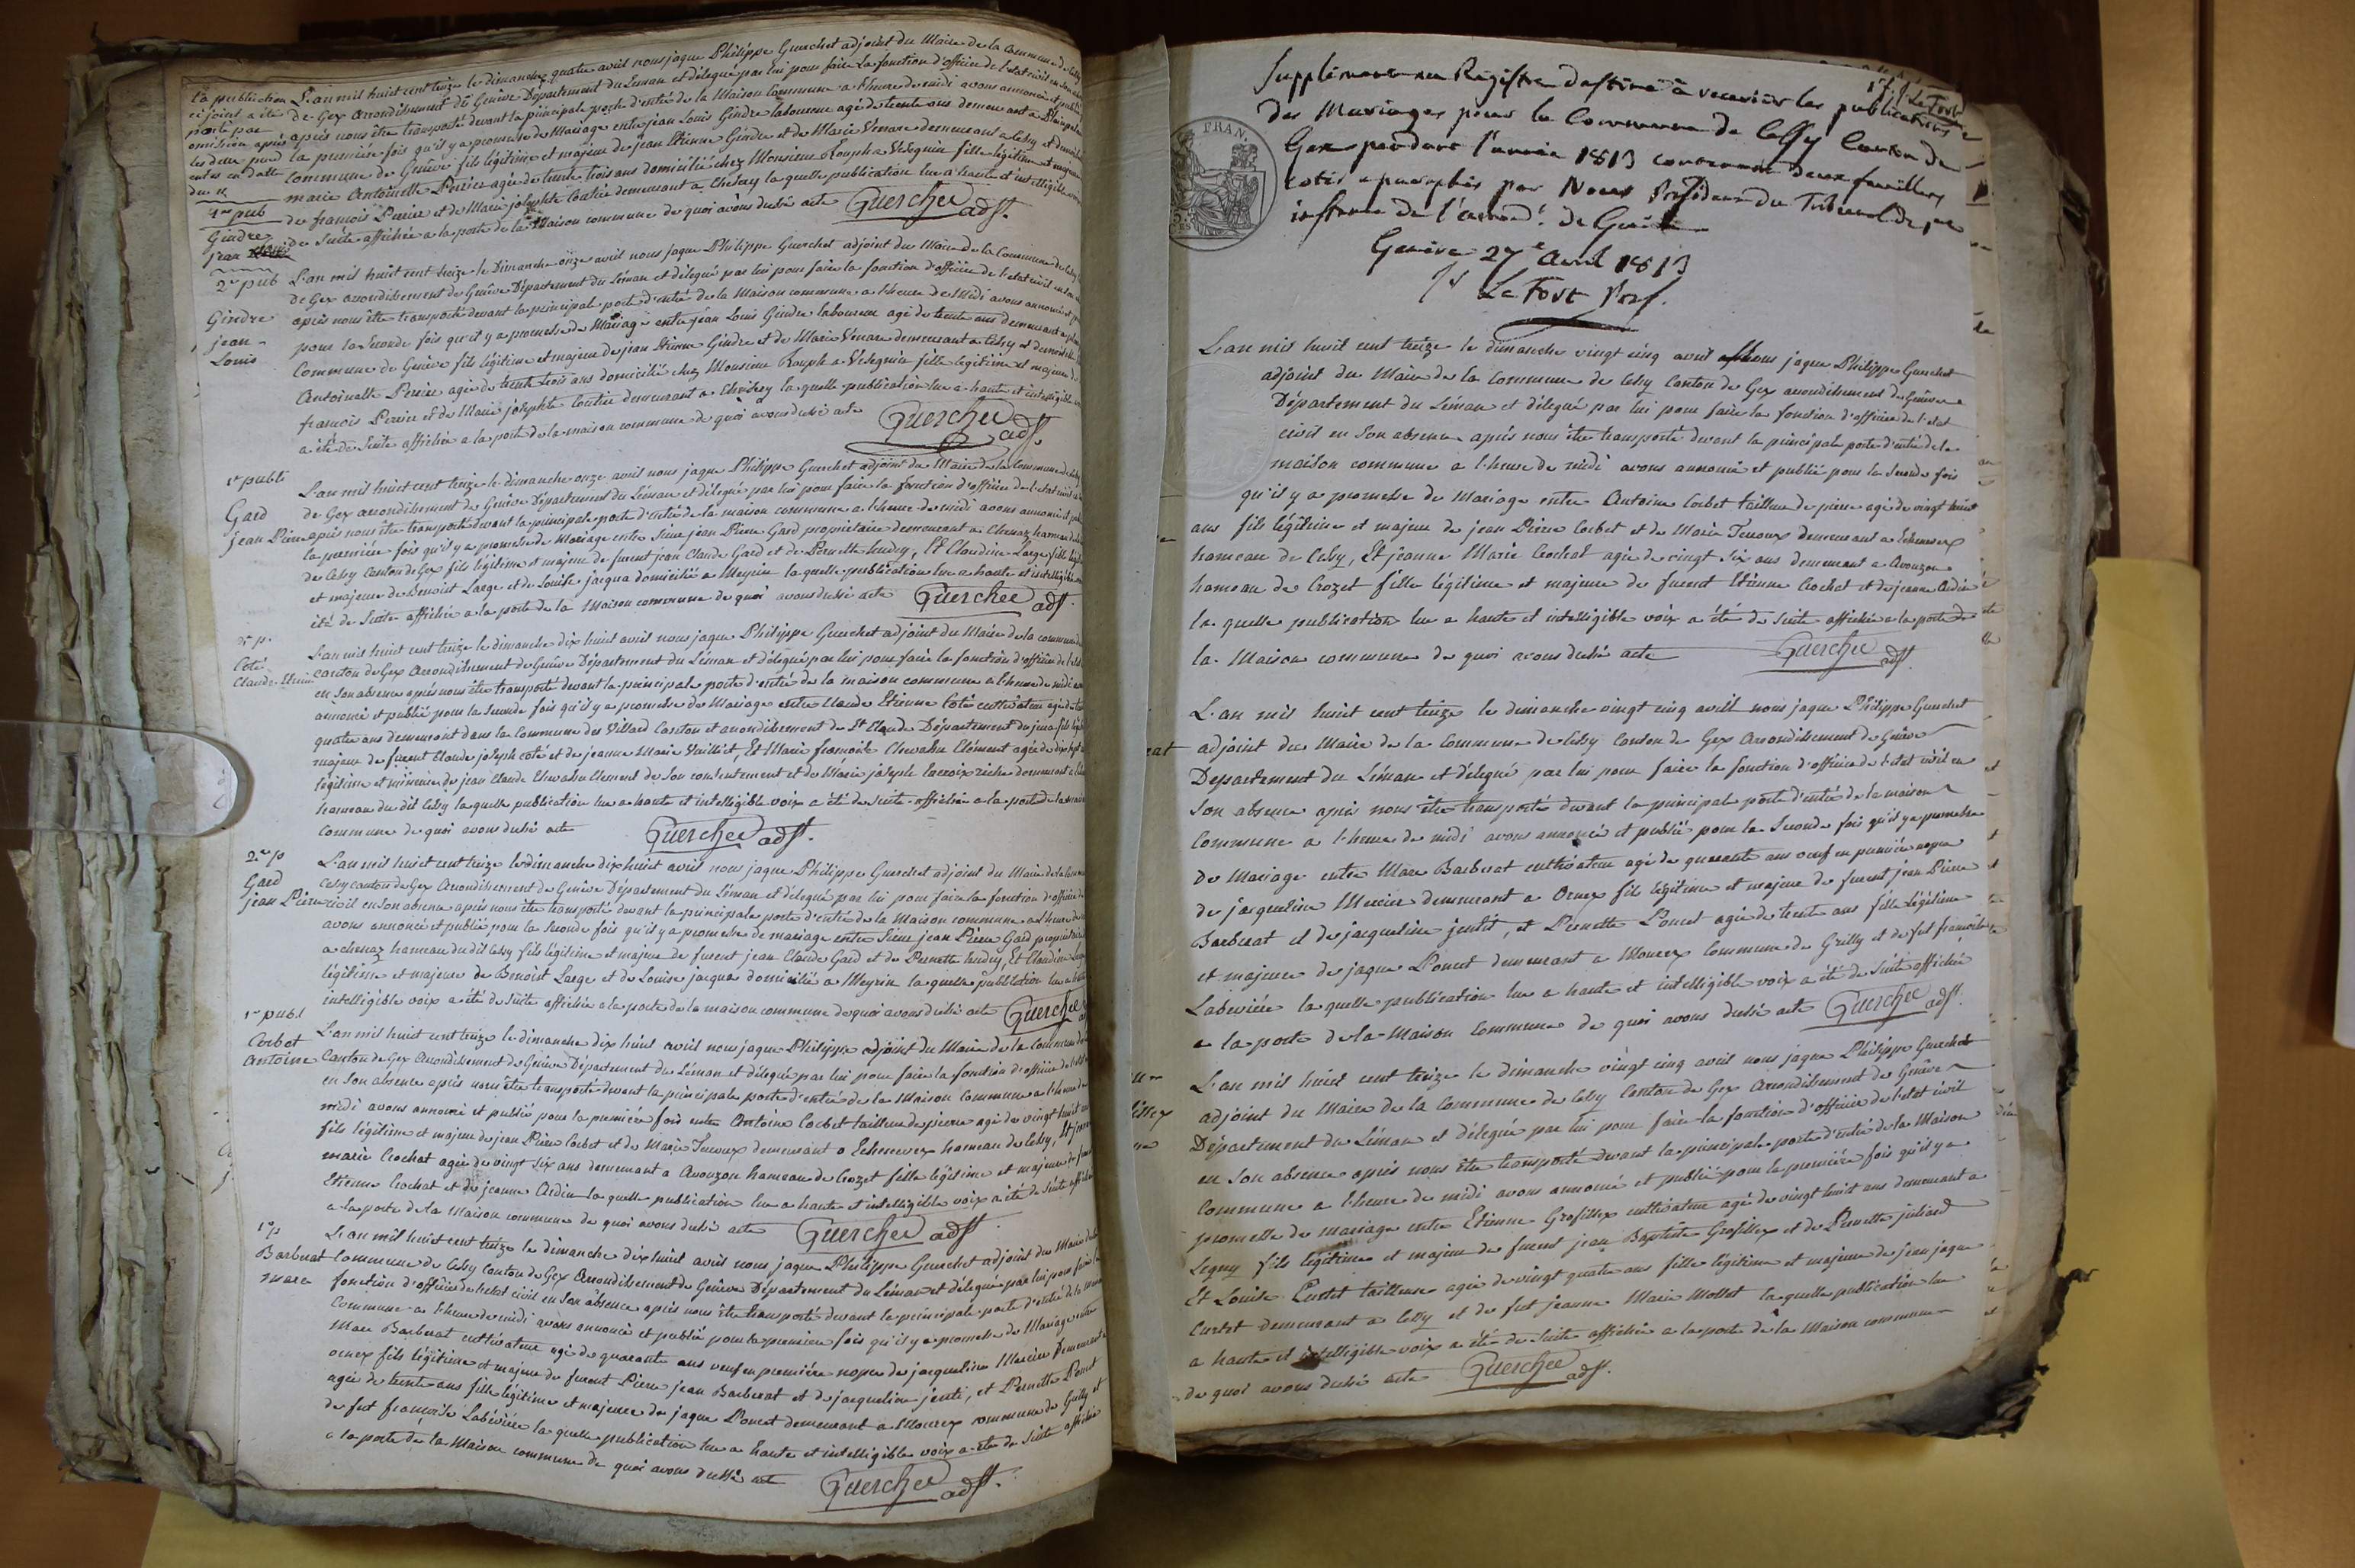 La publication
ci joint a été
porté par
omission après
les deux
du 11
1re pub
Gindre
jean
L'an mil huit cent treize le dimanche quatre avril nous jaque Philippe Guerchet adjoint du Maire de la Commune de Cessy
de Gex arrondissement de Genève Département du Leman et délegué par lui pour faire la fonction d'officier de l'etat civil en son
après nous être transporté devant la principale porte d'entré de la Maison Commune a l'heure de midi avons annoncé et publié
la première fois qu'il y a promesse de Mariage entre jean Louis Gindre laboureur agé de trente ans demeurant a
Commune de Genève fils légitime et majeur de jean Etienne Gindre et de Marie Venare demeurant a Cessy et
marie Antoinette Perrier agée de trente trois ans domicilié chez Monsieur fille légitime et majeure
de françois Perrier et de Marie josephte demeurant a Chésery la quelle publication lue a haute et intelligible
de Suite affichée a la porte de la Maison commune de quoi avons dressé acte Guerchet adjt.
2e pub
Gindre
jean
Louis
L'an mil huit cent treize le Dimanche onze avril nous jaque Philippe Guerchet adjoint du Maire de la Commune de Cessy
de Gex arrondissement de Genève Département du Léman et délegué par lui pour faire la fonction d'officier de l'etat civil en son
après nous être transporté devant la principale porte d'entré de la Maison commune a l'heure de Midi avons annoncé et
pour la Seconde fois qu'il y a promesse de Mariage entre jean Louis Gindre laboureur agé de trente ans demeurant a
Commune de Genève fils légitime et majeur de jean Etienne Gindre et de Marie Venare demeurant a Cessy et
Antoinette Perrier agée de trente trois ans domicilié chez Monsieur fille légitime et majeure de
francois Perrier et de Marie josephte demeurant a la quelle publication lue a haute et intelligible
a été de Suite affichée a la porte de la maison commune de quoi avons dressé acte Guerchet adjt.
1re publi
Gard
jean Pierre
L'an mil huit cent treize le dimanche onze avril nous jaque Philippe Guerchet adjoint du Maire de la Commune de Cessy
de Gex arrondissement de Genève Département du Léman et délegué par lui pour faire la fonction d'officier de l'etat civil
après nous être transporté devant la principale porte d'entré de la maison commune a l'heure de midi avons annoncé et
la première fois qu'il y a promesse de Mariage entre Sieur jean Pierre Gard propriétaire demeurant a Chenaz hameau
de Cessy Canton de Gex fils légitime et majeur de furent jean Claude Gard et de Pernette hudry, Et Claudine Large fille
et majeure de Benoit Large et de Louise jaqua domicilié a Meyrin la quelle publication lue a haute et intelligible
été de Suite affichée a la porte de la Maison commune de quoi avons dressé acte Guerchet adjt.
2e p.
Coté
Claude Etienne
L'an mil huit cent treize le dimanche dix huit avril nous jaque Philippe Guerchet adjoint du Maire de la commune
canton de Gex Arrondissement de Genève Département du Léman et délegué par lui pour faire la fonction d'officier de l'etat
en son absence après nous être transporté devant la principale porte d'entré de la maison commune a l'heure de midi
annoncé et publié pour la Seconde fois qu'il y a promesse de Mariage entre Claude Etienne Coté cultivateur agé de
quatre ans demeurant dans la Commune des Villard Canton et arrondissement de St Claude Département du jura fils
majeur de furent Claude joseph coté et de jeanne Marie Vuilliet, Et Marie francoise Chevassu Clément agée de dix
légitime et mineure de jean Claude Chevassu Clement de Son consentement et de Marie joseph Lacroix demeurant
hameau du dit Cessy la quelle publication lue a haute et intelligible voix a été de Suite affichée a la porte de la maison
commune de quoi avons dressé acte Guerchet adjt.
2e p
Gard
jean Pierre
L'an mil huit cent treize le dimanche dix huit avril nous jaque Philippe Guerchet adjoint du Maire de la
Cessy canton de Gex Arrondissement de Genève Département du Léman et délegué par lui pour faire la fonction d'officier
civil en son absence après nous être transporté devant la principale porte d'entré de la Maison commune a l'heure de
avons annoncé et publié pour la Seconde fois qu'il y a promesse de mariage entre Sieur jean Pierre Gard
a chenaz hameau du dit Cessy fils légitime et majeur de furent jean Claude Gard et de Pernette hudry, Et Claudine
légitime et majeure de Benoit Large et de Louise jaqua domicilié a Meyrin la quelle publication lue a
intelligible voix a été de Suite affichée a la porte de la maison commune de quoi avons dressé acte Guerchet
1re publ
Corbet
Antoine
L'an mil huit cent treize le dimanche dix huit avril nous jaque Philippe adjoint du Maire de la Commune
Canton de Gex Arrondissement de Genève Département du Léman et délegué par lui pour faire la fonction d'officier de l'etat
en Son absence après nous être transporté devant la principale porte d'entré de la Maison Commune a l'heure de
midi avons annoncé et publié pour la première fois entre Antoine Corbet tailleur de pierre agé de vingt huit
fils légitime et majeur de jean Pierre Corbet et de Marie Terroux demeurant a Echenevex hameau de Cessy, Et
marie Crochat agée de vingt Six ans demeurant a Avouzon hameau de Crozet fille légitime et majeure de
Etienne Crochat et de jeanne Ardin la quelle publication lue a haute et intelligible voix a été de Suite
a la porte de la Maison commune de quoi avons dressé acte Guerchet adjt.
1re p
Barberat
marc
L'an mil huit cent treize le dimanche dix huit avril nous jaque Philippe Guerchet adjoint du Maire de la
Commune de Cessy Canton de Gex Arrondissement de Genève Département du Léman et délegué par lui pour faire
fonction d'officier de l'etat civil en Son absence après nous être transporté devant la principale porte d'entré de la
Commune a l'heure de midi avons annoncé et publié pour la première fois qu'il y a promesse de Mariage entre
Marc Barberat cultivateur agé de quarante ans veuf en première nopce de jacqueline Mercier Demeurant a
ornex fils légitime et majeur de furent Pierre jean Barberat et de jaqueline jenti, et Pernette Poncet
agée de trente ans fille légitime et majeure de jaque Poncet demeurant a Mourex commune de Grilly et
de fut françoise Labévière la quelle publication lue a haute et intelligible voix a été de Suite affichée
a la porte de la Maison commune de quoi avons dressé acte Guerchet adjt.
1r f. Le Fort
FRAN.
Supplément au Régistre destiné à recevoir les publications
des Mariages pour la Commune de Cessy Canton de
Gex pendant l'année 1813 contenant deux feuillets
cotés & paraphés par Nous Président du Tribunal de pre
instance de l'arrondt. de Genève
Genève 27e Avril 1813
Le Fort Prst.
L'an mil huit cent treize le dimanche vingt cinq avril nous jaque Philippe Guerchet
adjoint du Maire de la Commune de Cessy Canton de Gex arrondissement de Genève
Département du Léman et délegué par lui pour faire la fonction d'officier de l'etat
civil en Son absence après nous être transporté devant la principale porte d'entré de la
maison commune a l'heure de midi avons annoncé et publié pour la Seconde fois
qu'il y a promesse de Mariage entre Antoine Corbet tailleur de pierre agé de vingt huit
ans fils légitime et majeur de jean Pierre Corbet et de Marie Terroux demeurant a Echenevex
hameau de Cessy, Et jeanne Marie Crochat agée de vingt Six ans demeurant a Avouzon
hameau de Crozet fille légitime et majeure de furent Etienne Crochat et de jeanne Ardin
la quelle publication lue a haute et intelligible voix a été de Suite affichée a la porte de
la Maison commune de quoi avons dressé acte Guerchet adjt.
L'an mil huit cent treize le dimanche vingt cinq avril nous jaque Philippe Guerchet
adjoint du Maire de la Commune de Cessy Canton de Gex Arrondissement de Genève
Département du Léman et délegué par lui pour faire la fonction d'officier de l'etat civil en
Son absence après nous être transporté devant la principale porte d'entré de la maison
Commune a l'heure de midi avons annoncé et publié pour la Seconde fois qu'il y a promesse
de Mariage entre Marc Barberat cultivateur agé de quarante ans veuf en première nopce
de jacqueline Mercier demeurant a Ornex fils légitime et majeur de furent jean Pierre
Barberat et de jacqueline jentit, et Pernette Poncet agée de trente ans fille légitime
et majeure de jaque Poncet demeurant a Mourex Commune de Grilly et de fut françoise
Labévière la quelle publication lue a haute et intelligible voix a été de Suite affichée
a la porte de la Maison Commune de quoi avons dressé acte Guerchet adjt.
L'an mil huit cent treize le dimanche vingt cinq avril nous jaque Philippe Guerchet
adjoint du Maire de la Commune de Cessy Canton de Gex Arrondissement de Genève
Département du Léman et délegué par lui pour faire la fonction d'officier de l'etat civil
en Son absence après nous être transporté devant la principale porte d'entré de la Maison
Commune a l'heure de midi avons annoncé et publié pour la première fois qu'il y a
promesse de mariage entre Etienne Grosfillex cultivateur agé de vingt huit ans demeurant a
Segny fils légitime et majeur de furent jean Baptiste Grosfillex et de Pernette juliard
Et Louise Curtet tailleuse agée de vingt quatre ans fille légitime et majeure de jean jaque
Curtet demeurant a Cessy et de fut jeanne Marie Mollet la quelle publication lue
a haute et intelligible voix a été de Suite affichée a la porte de la Maison commune
de quoi avons dressé acte Guerchet adjt.